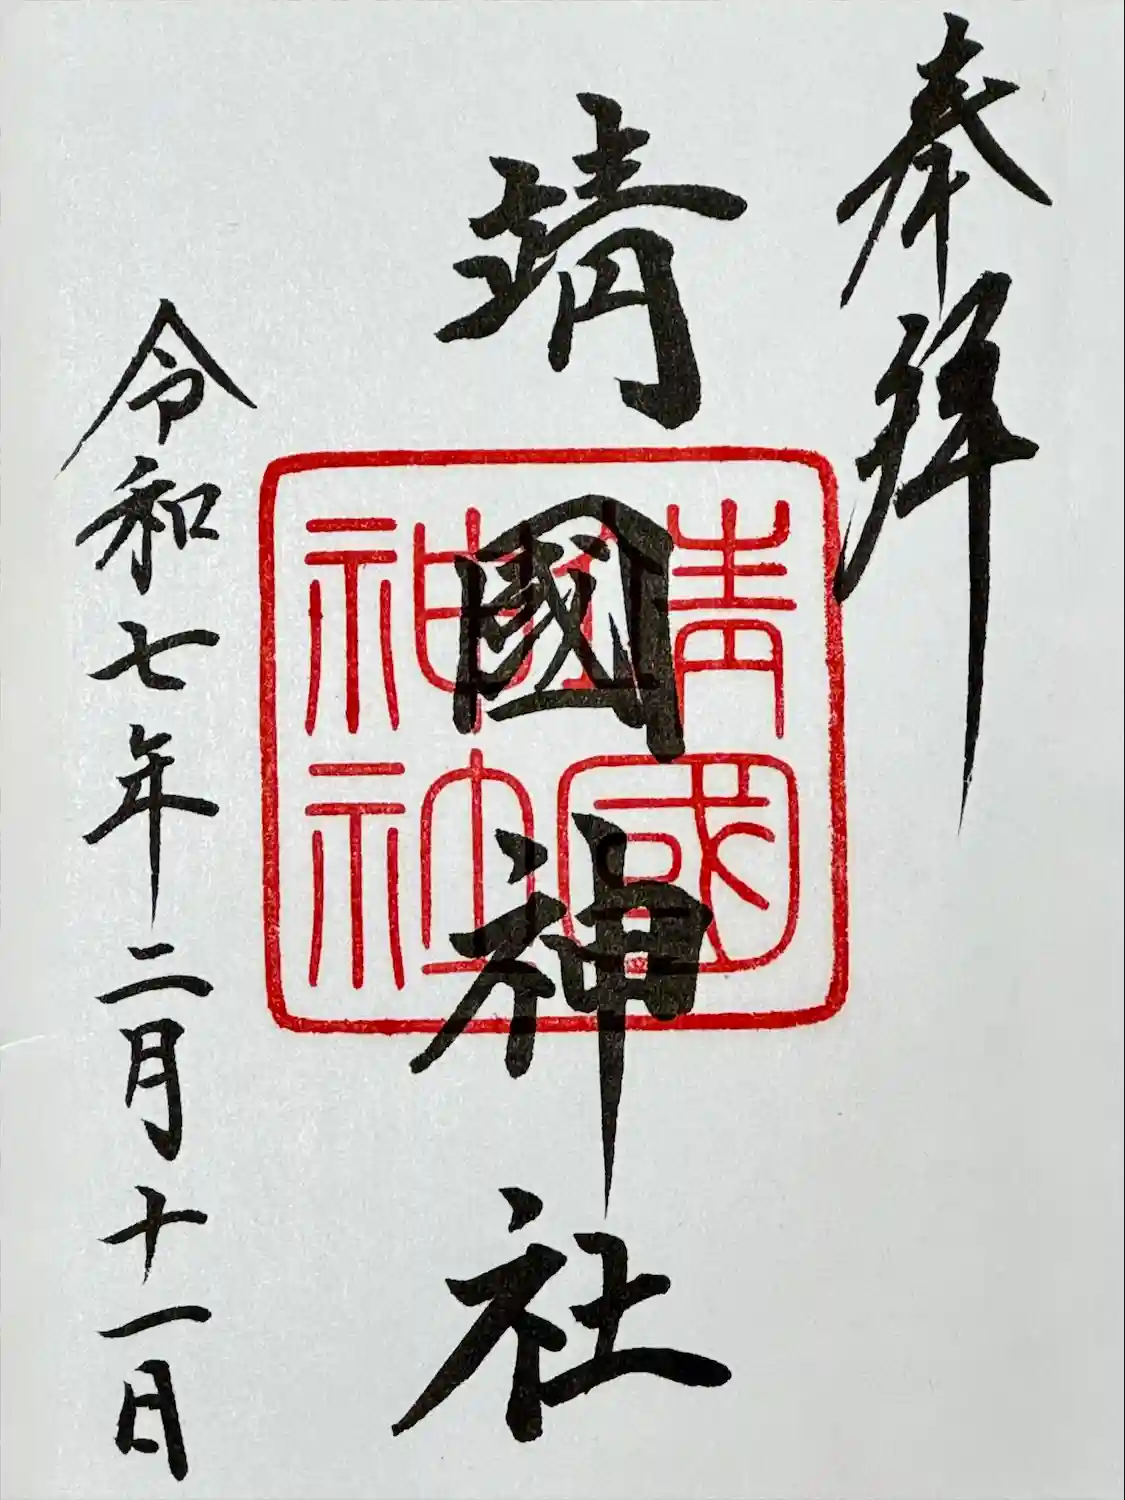 奉拝
靖國神社
靖國
神社
令和七年二月十一日